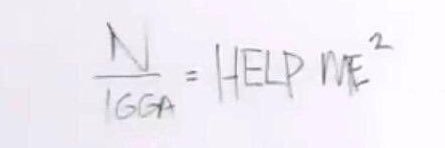 N
IGGA = HELP ME²